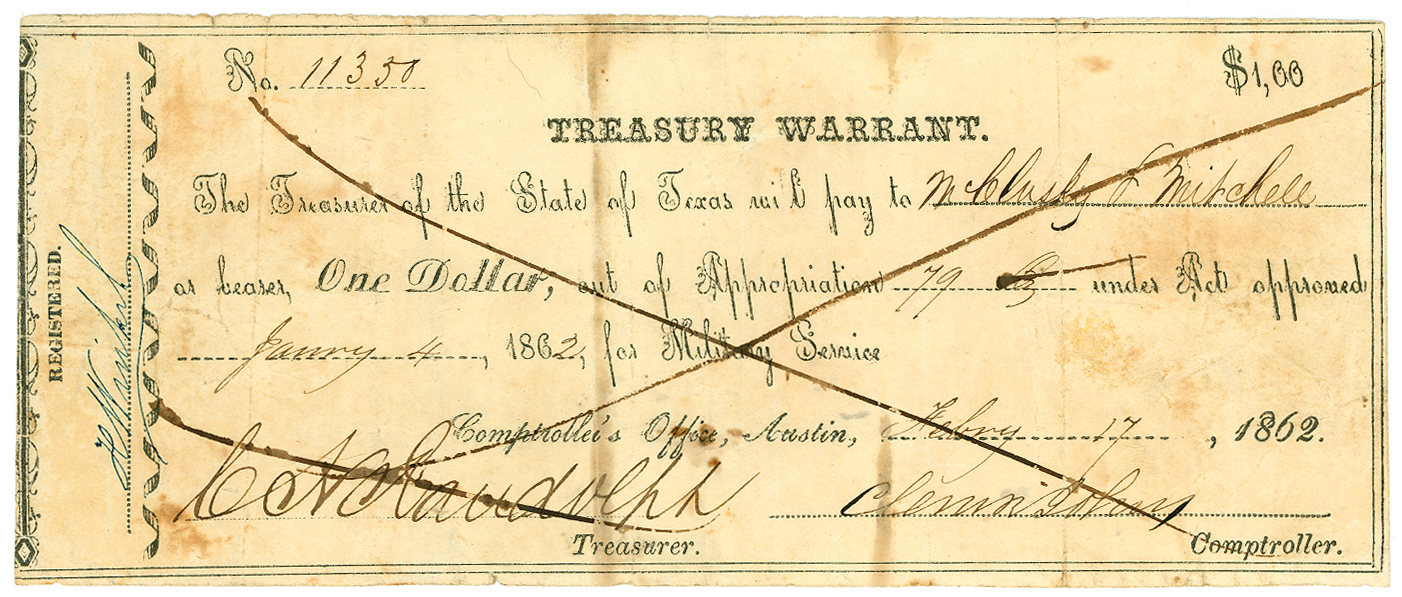 No. 11350
$1,00
TREASURY WARRANT.
The Treasurer of the State of Texas will pay to McClusky & Mitchell
or bearer, One Dollar, out of Appropriation 79 under Act approved
Janry 4, 1862, for Military Service
Comptroller's Office, Austin, Febry 17, 1862.
C H Randolph
Clement R Johns
Treasurer.
Comptroller.
REGISTERED.